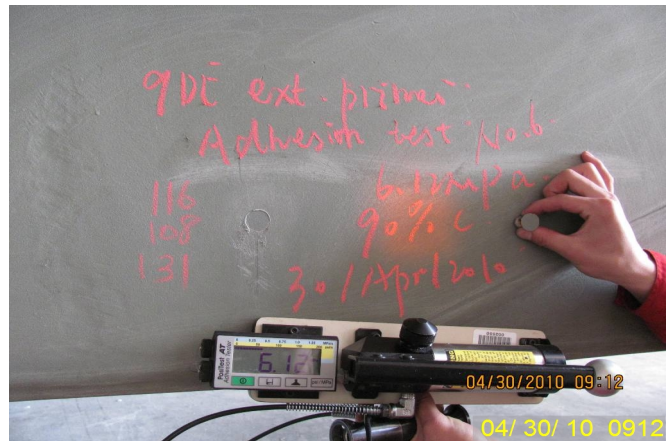 9DE ext. primer
Adhesion test No.6
6.12mpa
116
108
90% C
131
30/Apr/2010
PosiTest AT
Adhesion Tester
6.12
04/30/2010 09:12
04/ 30/ 10 0912